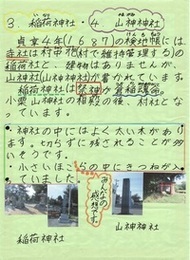 3 稲荷神社・4 山神神社
貞享4年(1687)の検地帳には
寺社は村中抱(村で維持管理する)の
稲荷社と、建物はありませんが、
山神社(山神神社)が書かれています。
稲荷神社は祭神が倉稲魂命
小栗山神社の相殿の後、村社とな
っています。
・神社の中にはよく太い木があり
ます。切らずに残されることが多
いそうです。
・小さいほこらの中にきつねが入っ
ていました。
みんなの感想です。
稲荷神社
山神神社